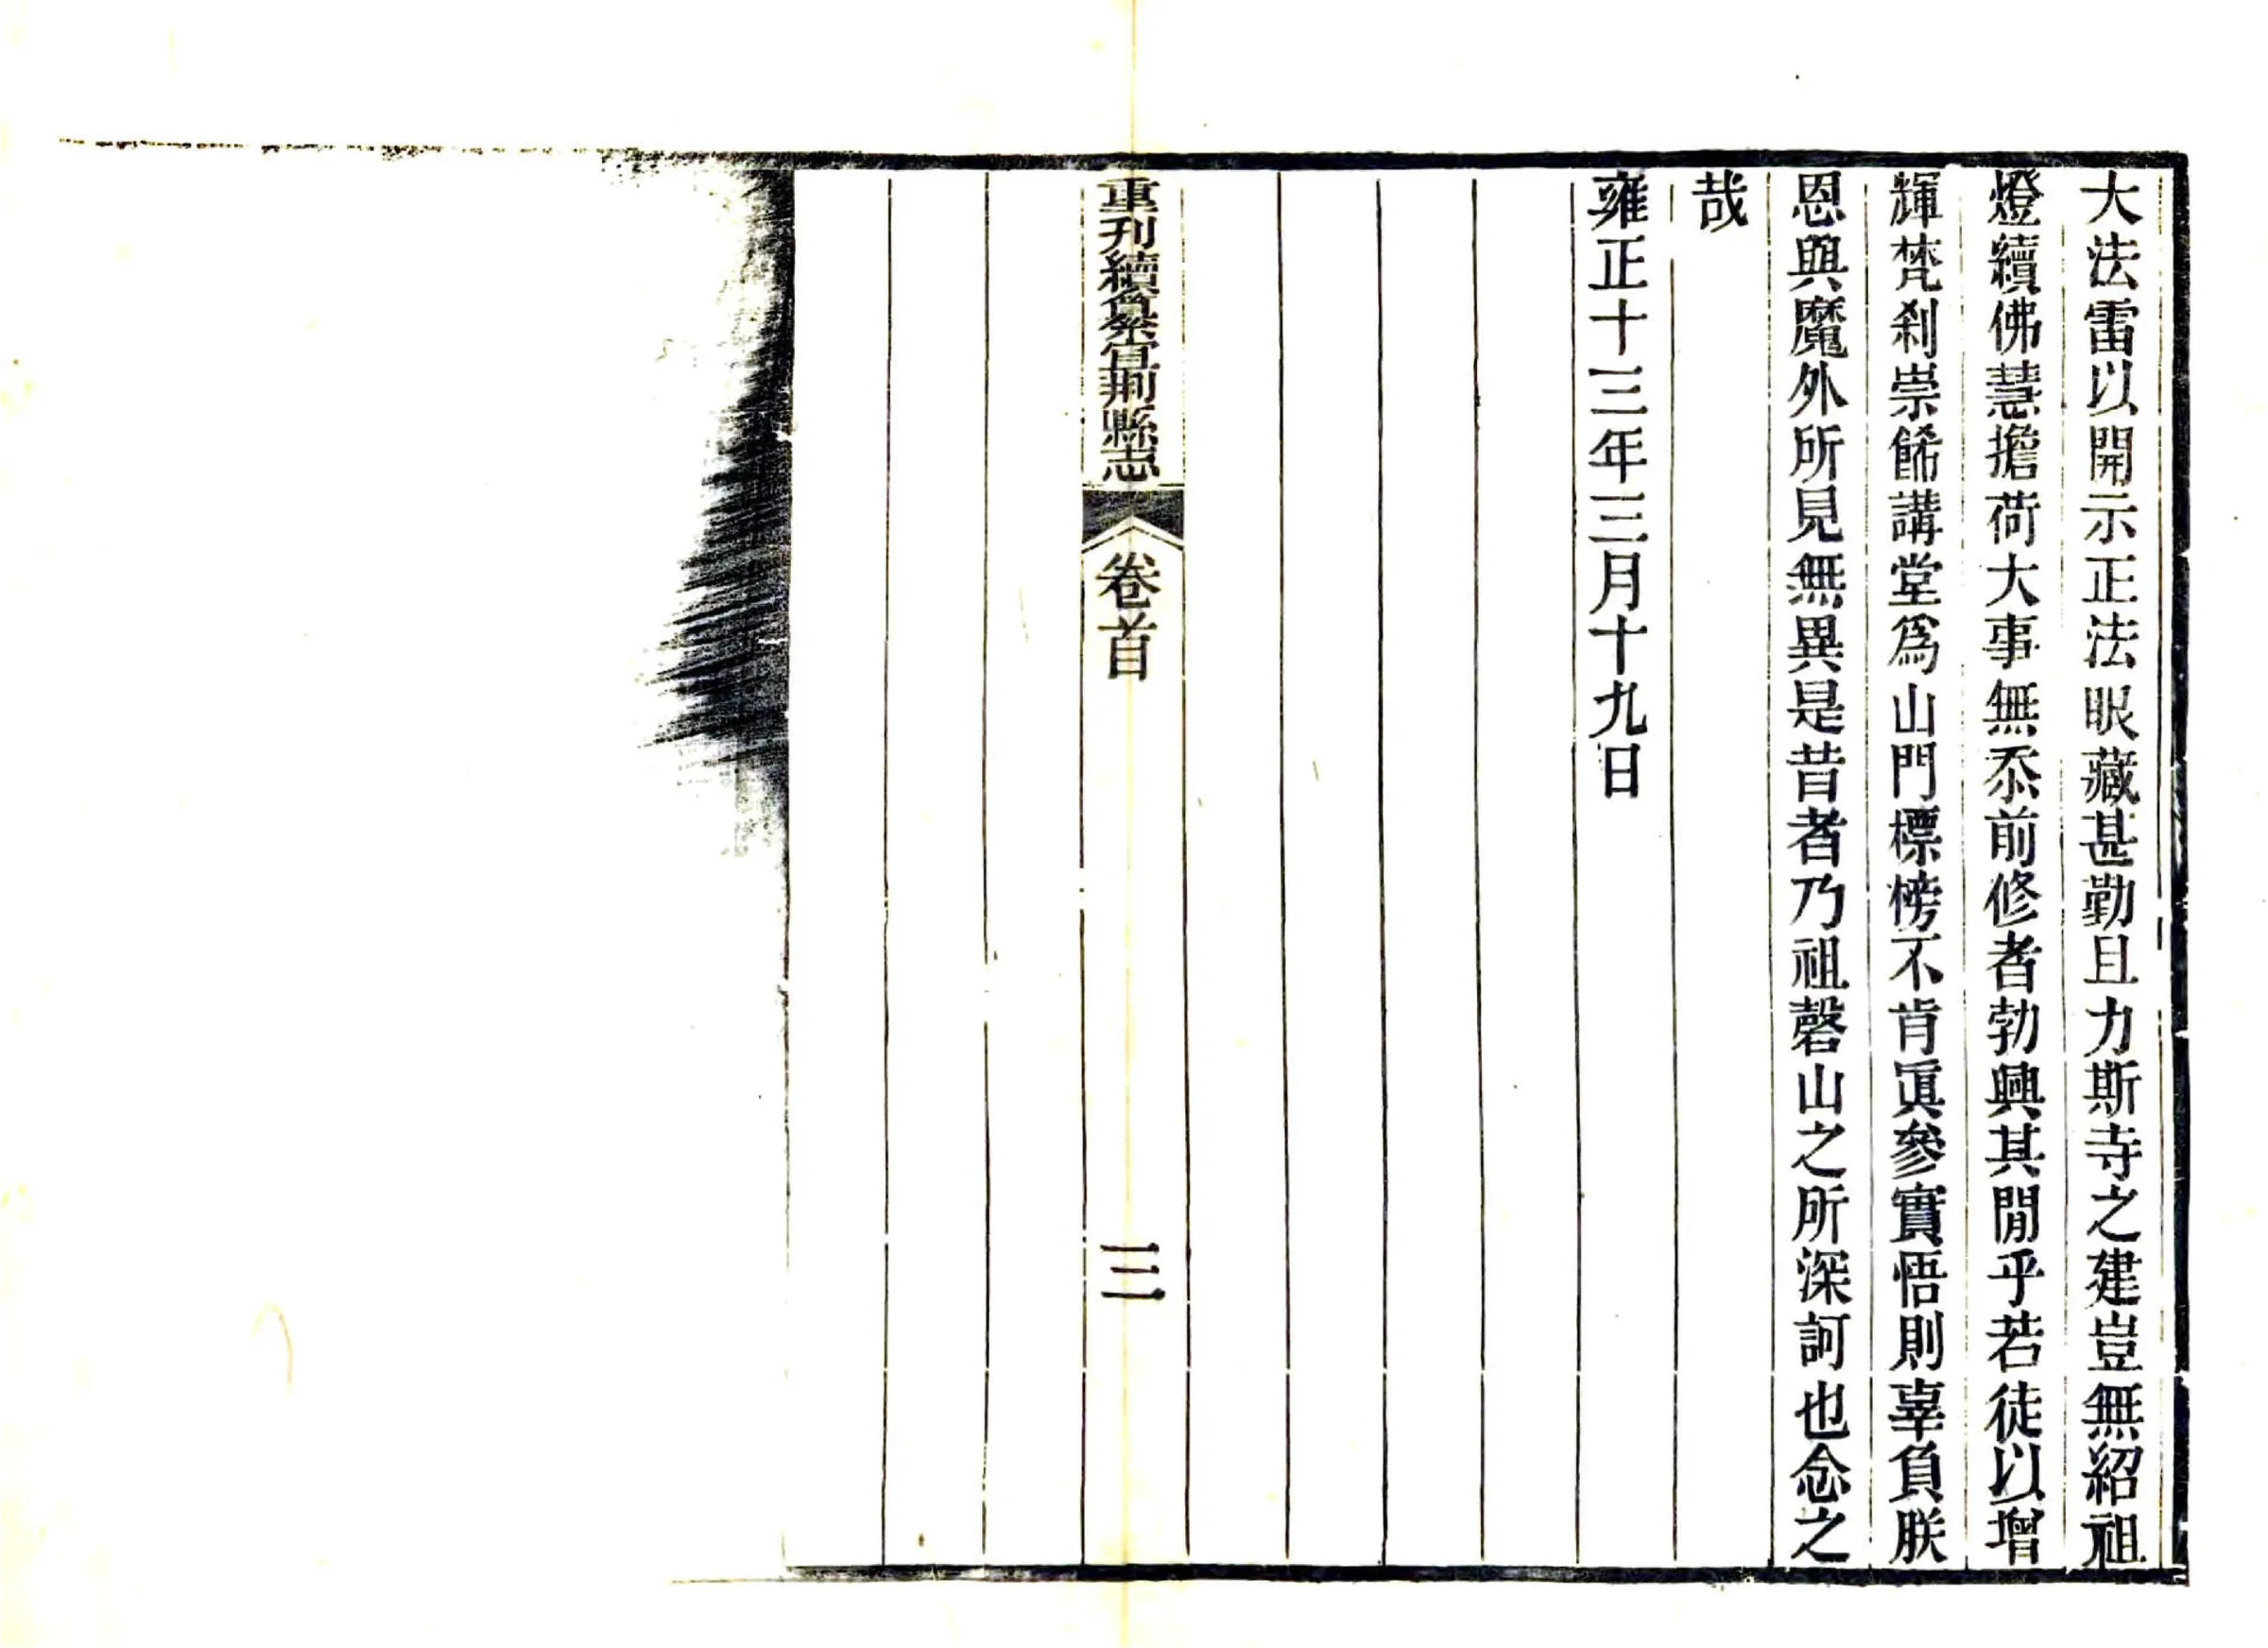 大法雷以開示正法眼藏甚勤且力斯寺之建豈無紹祖
燈續佛慧擔荷大事無忝前修者勃興其閒乎若徒以增
輝梵刹崇餙講堂爲山門標榜不肯眞參實悟則辜負朕
恩與魔外所見無異是昔者乃祖磬山之所深訶也念之
哉
雍正十三年三月十九日
重刊續纂宜荆縣志
卷首
三